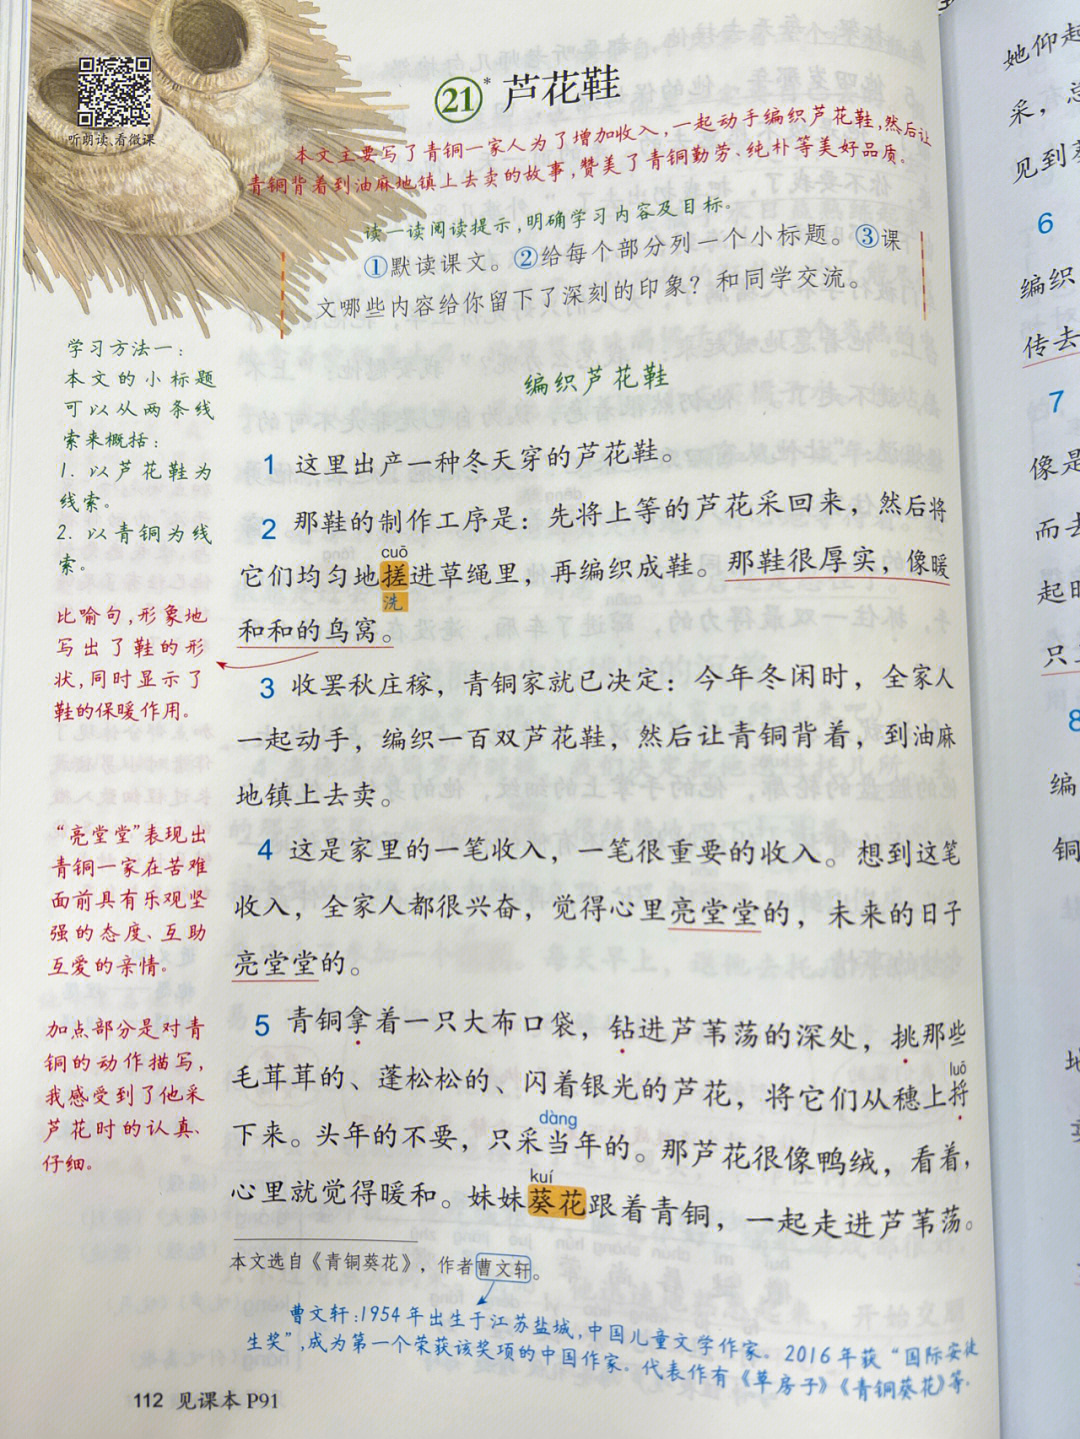 听朗读、看微课
21* 芦花鞋
本文主要写了青铜一家人为了增加收入,一起动手编织芦花鞋,然后让
青铜背着到油麻地镇上去卖的故事,赞美了青铜勤劳、纯朴等美好品质。
读一读阅读提示,明确学习内容及目标。
①默读课文。②给每个部分列一个小标题。③课
文哪些内容给你留下了深刻的印象?和同学交流。
学习方法一:
本文的小标题
可以从两条线
索来概括:
1. 以芦花鞋为
线索。
2. 以青铜为线
索。
编织芦花鞋
1 这里出产一种冬天穿的芦花鞋。
2 那鞋的制作工序是:先将上等的芦花采回来,然后将
cuō
它们均匀地搓进草绳里,再编织成鞋。那鞋很厚实,像暖
洗
和和的鸟窝。
比喻句,形象地
写出了鞋的形
状,同时显示了
鞋的保暖作用。
3 收罢秋庄稼,青铜家就已决定:今年冬闲时,全家人
一起动手,编织一百双芦花鞋,然后让青铜背着,到油麻
地镇上去卖。
4 这是家里的一笔收入,一笔很重要的收入。想到这笔
收入,全家人都很兴奋,觉得心里亮堂堂的,未来的日子
亮堂堂的。
“亮堂堂”表现出
青铜一家在苦难
面前具有乐观坚
强的态度、互助
互爱的亲情。
5 青铜拿着一只大布口袋,钻进芦苇荡的深处,挑那些
luō
毛茸茸的、蓬松松的、闪着银光的芦花,将它们从穗上捋
dàng
下来。头年的不要,只采当年的。那芦花很像鸭绒,看着,
kuí
心里就觉得暖和。妹妹葵花跟着青铜,一起走进芦苇荡。
加点部分是对青
铜的动作描写,
我感受到了他采
芦花时的认真、
仔细。
本文选自《青铜葵花》,作者曹文轩。
曹文轩:1954年出生于江苏盐城,中国儿童文学作家。2016年获“国际安徒
生奖”,成为第一个荣获该奖项的中国作家。代表作有《草房子》《青铜葵花》等。
112 见课本 P91
她仰起
采,总
见到葵
6
编织
传去
7
像是
而去
起时
只
8
编
铜
地